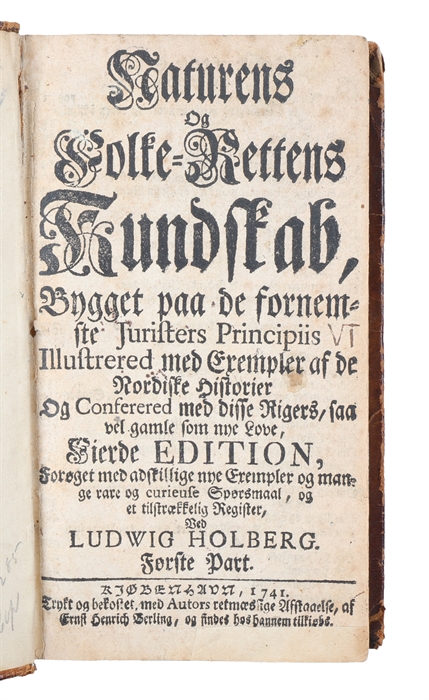 Naturens
Og
Folke-Rettens
Kundskab,
Bygget paa de fornem-
ste Juristers Principiis VI
Illustrered med Exempler af de
Nordiske Historier
Og Conferered med disse Rigers, saa
vel gamle som nye Love,
Fierde EDITION,
Forøget med adskillige nye Exempler og man-
ge rare og curieuse Spørsmaal, og
et tilstrækkelig Register,
Ved
LUDWIG HOLBERG.
Første Part.
KIØBENHAVN, 1741.
Trykt og bekostet, med Autors retmæssige Afstaaelse, af
Ernst Henrich Berling, og findes hos hannem tilkiøbs.